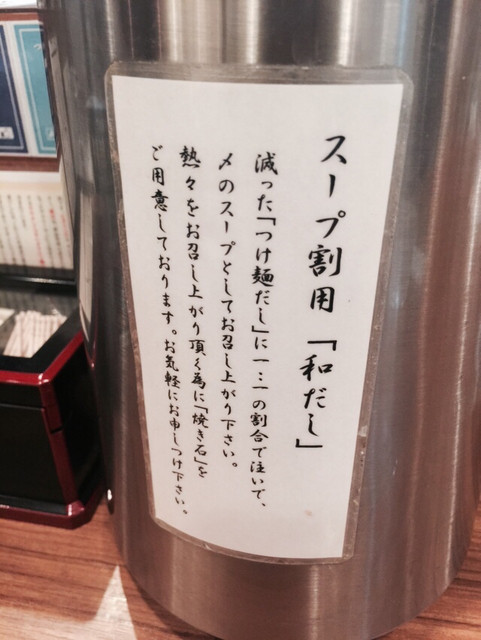 スープ割用「和だし」
減った「つけ麺だし」に一：一の割合で注いで、
〆のスープとしてお召し上がり下さい。
熱々をお召し上がり頂く為に「焼き石」を
ご用意しております。お気軽にお申しつけ下さい。